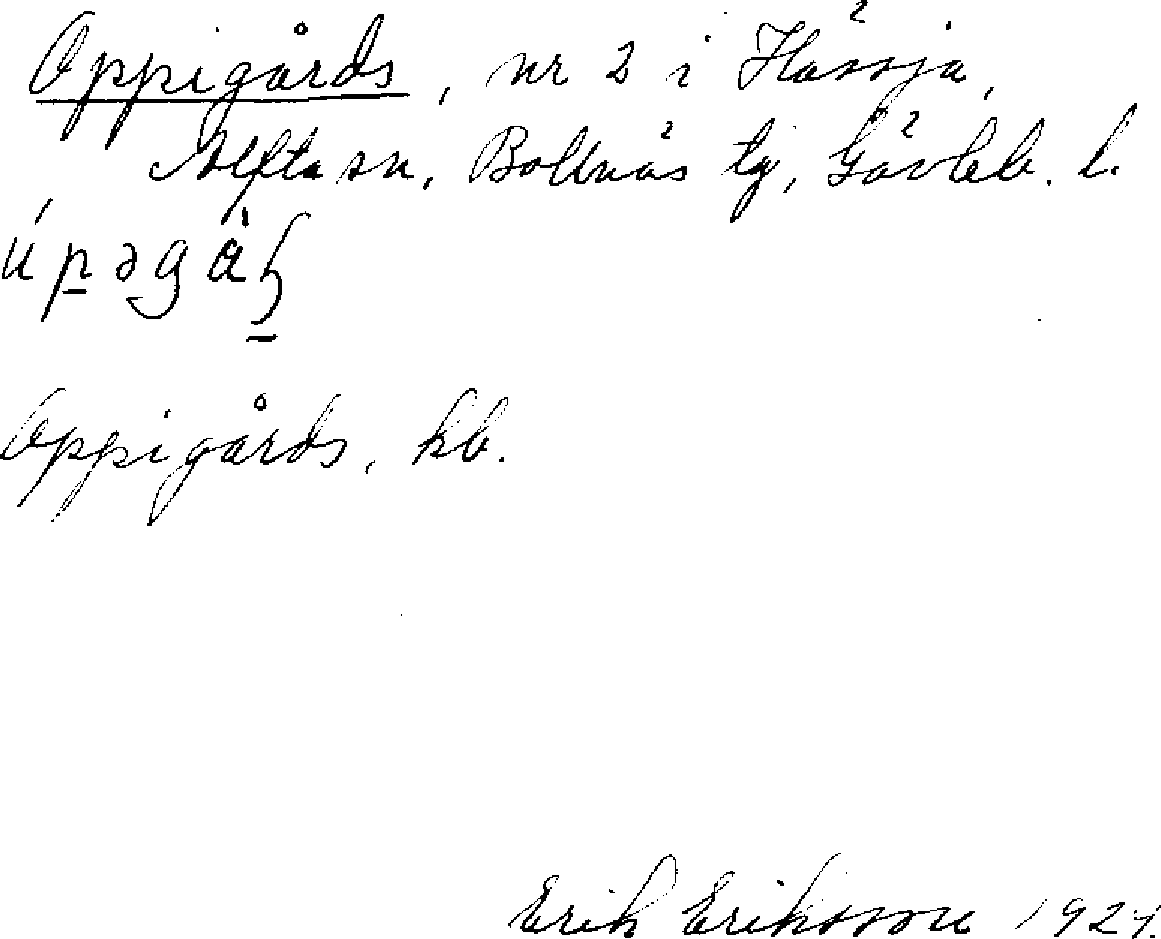 Oppigårds, nr 2 i Hässja,
Alfta sn, Bollnäs tg, Gävleb. l.
Oppigårds, kb.
Erik Eriksson 1924.